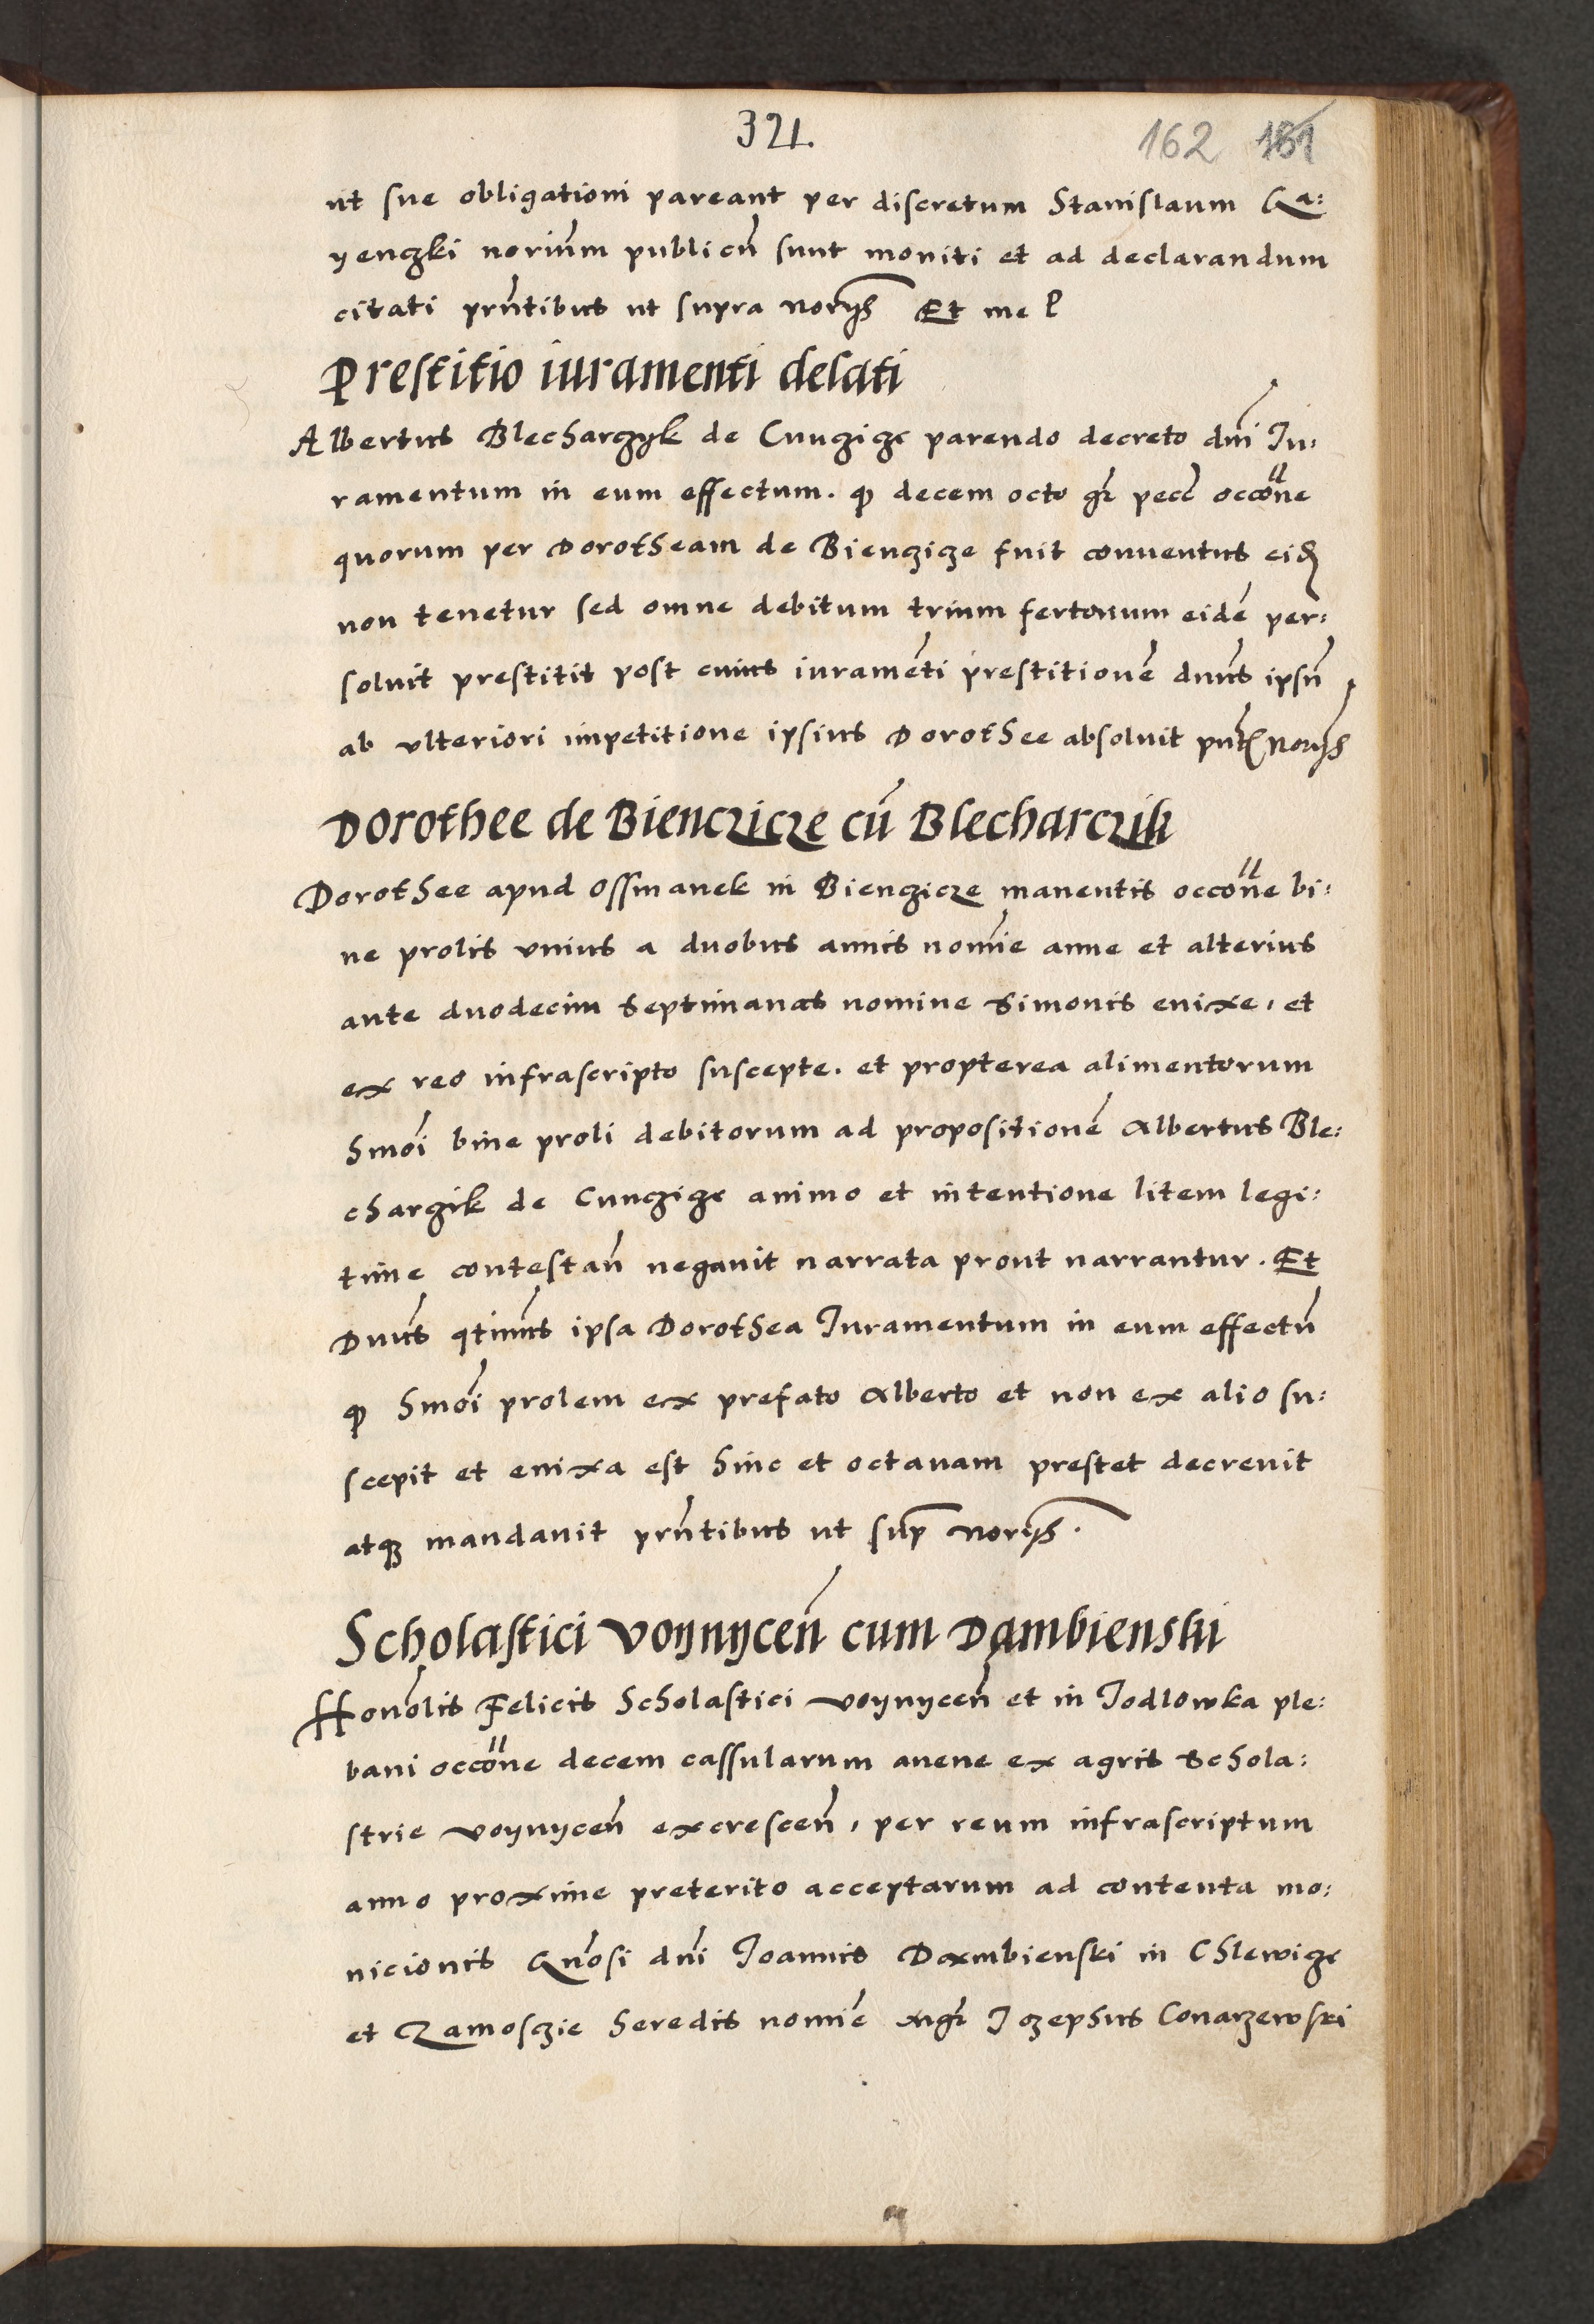 321.
162 161
ut sue obligationi pareant per discretum Stanislaum Ga:
yenczki noriũm publicũ sunt moniti et ad declarandum
citati prñtibus ut supra norijs Et me P
Prestitio iuramenti delati
Albertus Blecharczyk de Cunczicze parendo decreto dnĩ Iu:
ramentum in eum effectum. ꝙ decem octo gr̃ pecc̃ occõne
quorum per Dorotheam de Bienczicze fuit conuentus eidẽ
non tenetur sed omne debitum trium fertonum eidẽ per:
soluit prestitit post cuius iuramẽti prestitionẽ dnũs ipsũ
ab vlteriori impetitione ipsius Dorothee absoluit pñt norijs
Dorothee de Bienczicze cũ Blecharczik
Dorothee apud Ossmanek in Bienczicze manentis occõne bi:
ne prolis vnius a duobus annis nomĩe anne et alterius
ante duodecim septimanas nomine Simonis enixe, et
ex reo infrascripto suscepte. et propterea alimentorum
hmõi bine proli debitorum ad propositionẽ Albertus Ble:
charczik de Cunczicze animo et intentione litem legi:
time contestañ negauit narrata prout narrantur. Et
Dnũs qtinũs ipsa Dorothea Iuramentum in eum effectũ
ꝙ hmõi prolem ex prefato Alberto et non ex alio su:
scepit et enixa est hinc et octauam prestet decreuit
atqꝫ mandauit prñtibus ut sup̃ norijs.
Scholastici Voynyceñ cum Dambienski
Honõlis Felicis Scholastici Voynyceñ et in Jodlowka ple:
bani occõne decem cassularum auene ex agris Schola:
strie Voynyceñ excresceñ, per reum infrascriptum
anno proxime preterito acceptarum ad contenta mo:
nicionis Gnõsi dnĩ Joannis Dambienski in Chlewicze
et Zamosczie heredis nomĩe mgr̃ Jozephus Conarzewski